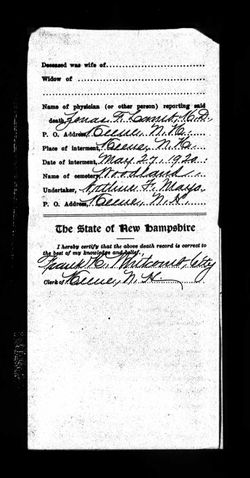 Deceased was wife of
Widow of
Name of physician (or other person) reporting said
death, Jonas F. Lamb, M.D.
P. O. Address, Keene, N. H.
Place of interment, Keene, N. H.
Date of interment, May 27, 1920
Name of cemetery, Woodland
Undertaker, F. Mayo
P. O. Address, Keene, N. H.
The State of New Hampshire
I hereby certify that the above death record is correct to
the best of my knowledge and belief.
Frank H. Whitcomb, City
Clerk of Keene, N. H.